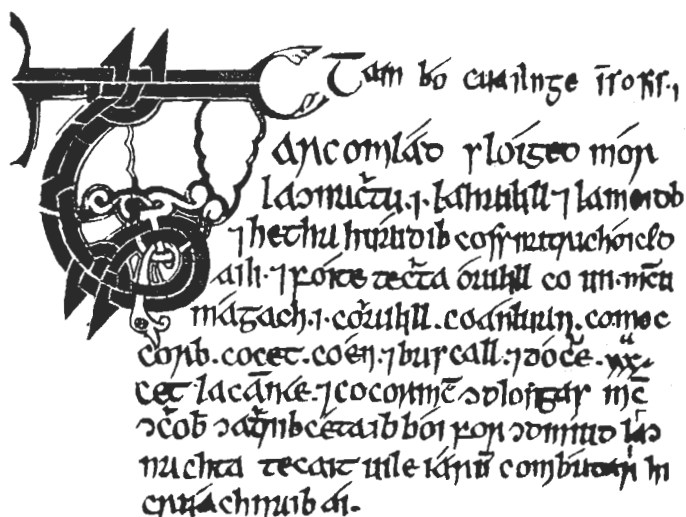 Tain bó cuailnge īso sis.,
arcomlád sloiged mór
laↄnachtu .i. lahailill ⁊ lameidb
⁊ hetha huaidib cossna trichóiced
aili. ⁊ foite techta óailill co uii. mc̄u
mágach .i. coailill. coanluan. comoc
corb. cocet. coén. ⁊ bascall. ⁊ dóche. xxx.
cet lacān áe. ⁊ cocormc̄ ↄdloigas mc̄
ↄcob̄ ↄatrib cétaib bói for ↄdmiud laↄ
nachta tecait uile iarū combátar hi
cruáchnaib ái.